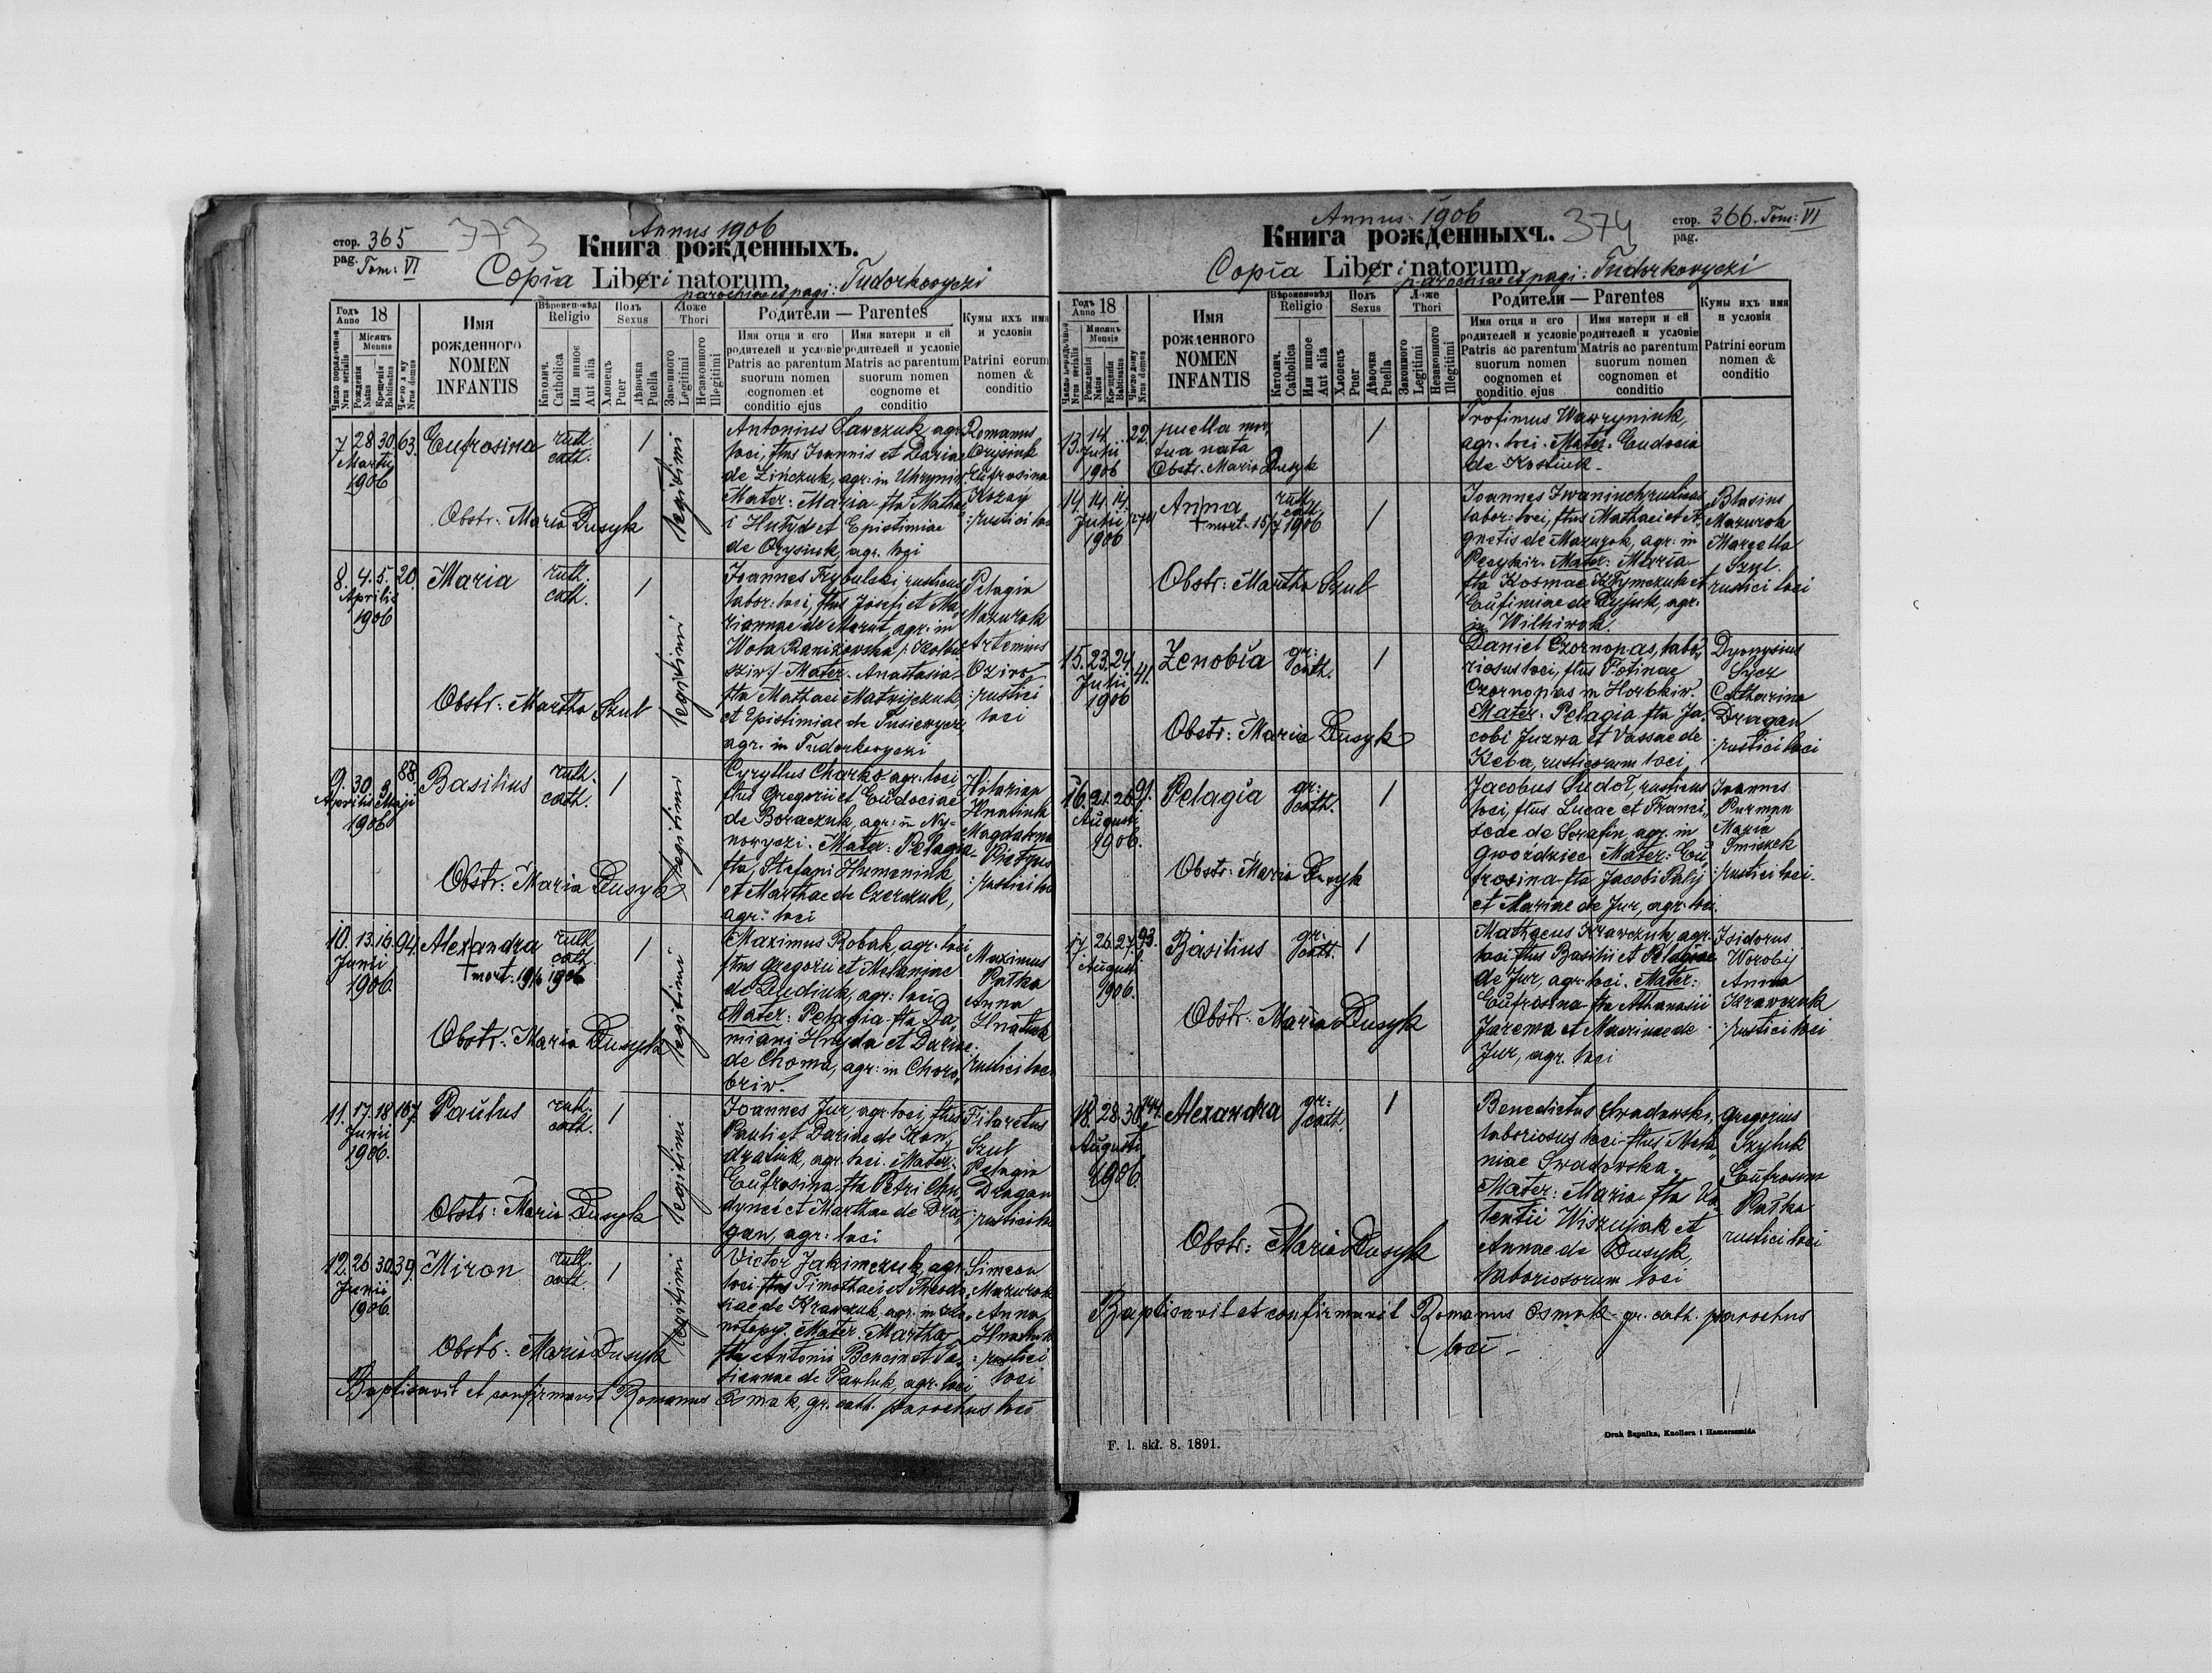 Annus 1906
стор. 365
pag. Tom: VI
373
Книга рожденныхъ.
Copia Libri natorum,
parochiae et pagi: Tudorkovyczi
Годъ Anno 18
Имя рожденного
NOMEN INFANTIS
Вѣроисповѣд Religio
Полъ Sexus
Ложе Thori
Родители — Parentes
Кумы ихъ имя и условія
Patrini eorum nomen & conditio
Число порядочное Nrus serialis
Мѣсяцъ Mensis
Рожденія Natus
Крещенія Babtisatus
Число д му Nrus domus
Католич. Catholica
Или инное Aut alia
Хлопецъ Puer
Дѣвочка Puella
Законного Legitimi
Незаконного Illegitimi
Имя отця и его родителей и условіе
Patris ac parentum suorum nomen cognomen et conditio ejus
Имя матери и ей родителей и условіе
Matris ac parentum suorum nomen cognome et conditio
7 28 30 63. Eufrosina ruth. cath. 1 legitimi
Martij
1906
Antonius Sawczuk, agr.
loci, flus Joannis et Dariae
de Zińczuk, agr: in Uhryniw
Mater: Maria fla Matha
i Hułyd et Epistimiae
de Orysiuk, agr. loci
Romanus
Orysiuk
Eufrosina
Kozay
Obstr: Maria Dusyk
8. 4. 5. 20. Maria ruth. cath. 1 legitimi
Aprilis
1906
Joannes Trybulski, rusticus
labor: loci, flus Josefi et Ma,
riannae de Marut, agr: in
Wola Raniżowska
Mater. Anastasia
fla Mathaei Matvijczuk,
et Epistimiae de Tusiewycz,
agr. in Tudorkovyczi
Pelagia
Mazurok
Artemius
rustici
loci
Obstr: Martha Szul
9. 30. 3 88. Basilius ruth. cath. 1 legitimi
Aprilis Maji
1906
Cyryllus Charko agr: loci,
flus Gregorii et Eudociae
de Boraczuk, agr: in Ny-
nowyczi. Mater: Pelagia
fla, Stefani Humeniuk
et Marthae de Czerczuk,
agr: loci
Hilarian
Hnatiuk
Magdalena
Obstr: Maria Dusyk
10. 13. 16. 94. Alexandra ruth cath. 1 legitimi
Junii
1906
† mort. 19/6 1906
Maximus Robak, agr. loci
flus Gregorii et Melaniae
de Dudiuk, agr: loci
Mater: Pelagia fla Da,
miani Hnyda et Dariae
de Choma, agr: in Choro,
briw.
Maximus
Patka
Anna
Hnatiuk
Obstr: Maria Dusyk
11. 17. 18 107. Paulus ruth. cath. 1 legitimi
Junii
1906.
Joannes Jur, agr. loci, flus
Pauli et Dariae de Kon,
dratiuk, agr. loci. Mater:
Eufrosina fla Petri
et Marthae de Dra,
gan, agr: loci
Filaretus
Szul
Pelagia
Dragan
Obstr: Maria Dusyk
12. 26. 30. 39. Miron ruth. cath. 1 legitimi
Junii
1906
Victor Jakimczuk, agr.
loci flus Timothaei et Theodo,
siae de Krawczuk, agr. in
Mater. Martha
fla Antonii Bencin et Ta,
tiannae de Pawluk, agr. loci
Simeon
Mazurok
Anna
Hnatiuk
rustici
loci
Obstr: Maria Dusyk
Baptisavit et confirmavit Romanus Osmak, gr. cath. parochus loci
Annus 1906
374
стор. 366. Tom: VI
pag.
Книга рожденныхъ.
Copia Libri natorum,
parochiae et pagi: Tudorkovyczi
Годъ Anno 18
Имя рожденного
NOMEN INFANTIS
Вѣроисповѣд Religio
Полъ Sexus
Ложе Thori
Родители — Parentes
Кумы ихъ имя и условія
Patrini eorum nomen & conditio
Имя отця и его родителей и условіе
Patris ac parentum suorum nomen cognomen et conditio ejus
Имя матери и ей родителей и условіе
Matris ac parentum suorum nomen cognomen et conditio
13. 14. 22. puella mor,
tua nata 1
Julii
1906
Obstr. Maria Dusyk
Trofimus Wawryniuk,
agr. loci. Mater: Eudocia
de Kostiuk
14. 14. 14. Anna ruth cath. 1
Julii
1906
† mort. 15/7 1906
Joannes Iwaniuch, rusticus
labor: loci, flus Mathaei et A,
gnetis de Mazurok, agr: in
Mater: Maria
fla Kosmae Kłymczuk et
Eufimiae de Dyjuk, agr.
in Wilkiwok.
Blasius
Mazurok
Marcella
Szul.
rustici loci
Obstr: Martha Szul
15. 23. 24. 41. Zenobia gr: cath. 1
Julii
1906
Daniel Czornopas, labo,
riosus loci, flus Potinae
Czornopas in Horbkiw.
Mater: Pelagia fla Ja,
cobi Juzwa et Vassae de
Keba, rusticorum loci
Dyonysius
Sycz
Catharina
Dragan
rustici loci
Obstr: Maria Dusyk
16. 21. 26. 91. Pelagia gr: cath. 1
Augusti
1906.
Jacobus Sudoł, rusticus
loci, flus Lucae et Franci,
scae de Serafin, agr. in
Gwoździec Mater: Eu,
frosina fla Jacobi Palij
et Mariae de Jur, agr. loci.
Joannes
Furman
Maria
Smiszek
rustici loci.
Obstr: Maria Dusyk
17. 26. 27. 93. Basilius gr. cath. 1
Augusti
1906.
Mathaeus Krawczuk, agr.
loci flus Basilii et Pelagiae
de Jur, agr. loci. Mater:
Eufrosina fla Athanasii
Jarema et Marinae de
Jur, agr. loci
Isidorus
Worobij
Anna
Krawczuk
rustici loci
Obstr: Maria Dusyk
18. 28. 30. 144. Alexandra gr: cath. 1
Augusti
1906.
Benedictus Swadowski,
laboriosus loci flus Mela,
niae Swadowska.
Mater: Maria fla Va,
lentii Wiszujak et
Annae de Dusyk,
laboriosorum loci
Gregorius
Szyluk
Eufrosina
Patka
rustici loci
Obstr: Maria Dusyk
Baptisavit et confirmavit Romanus Osmak gr. cath. parochus
loci
F. l. skł. 8. 1891.
Druk Żupnika, Knollera i Hamerszmida